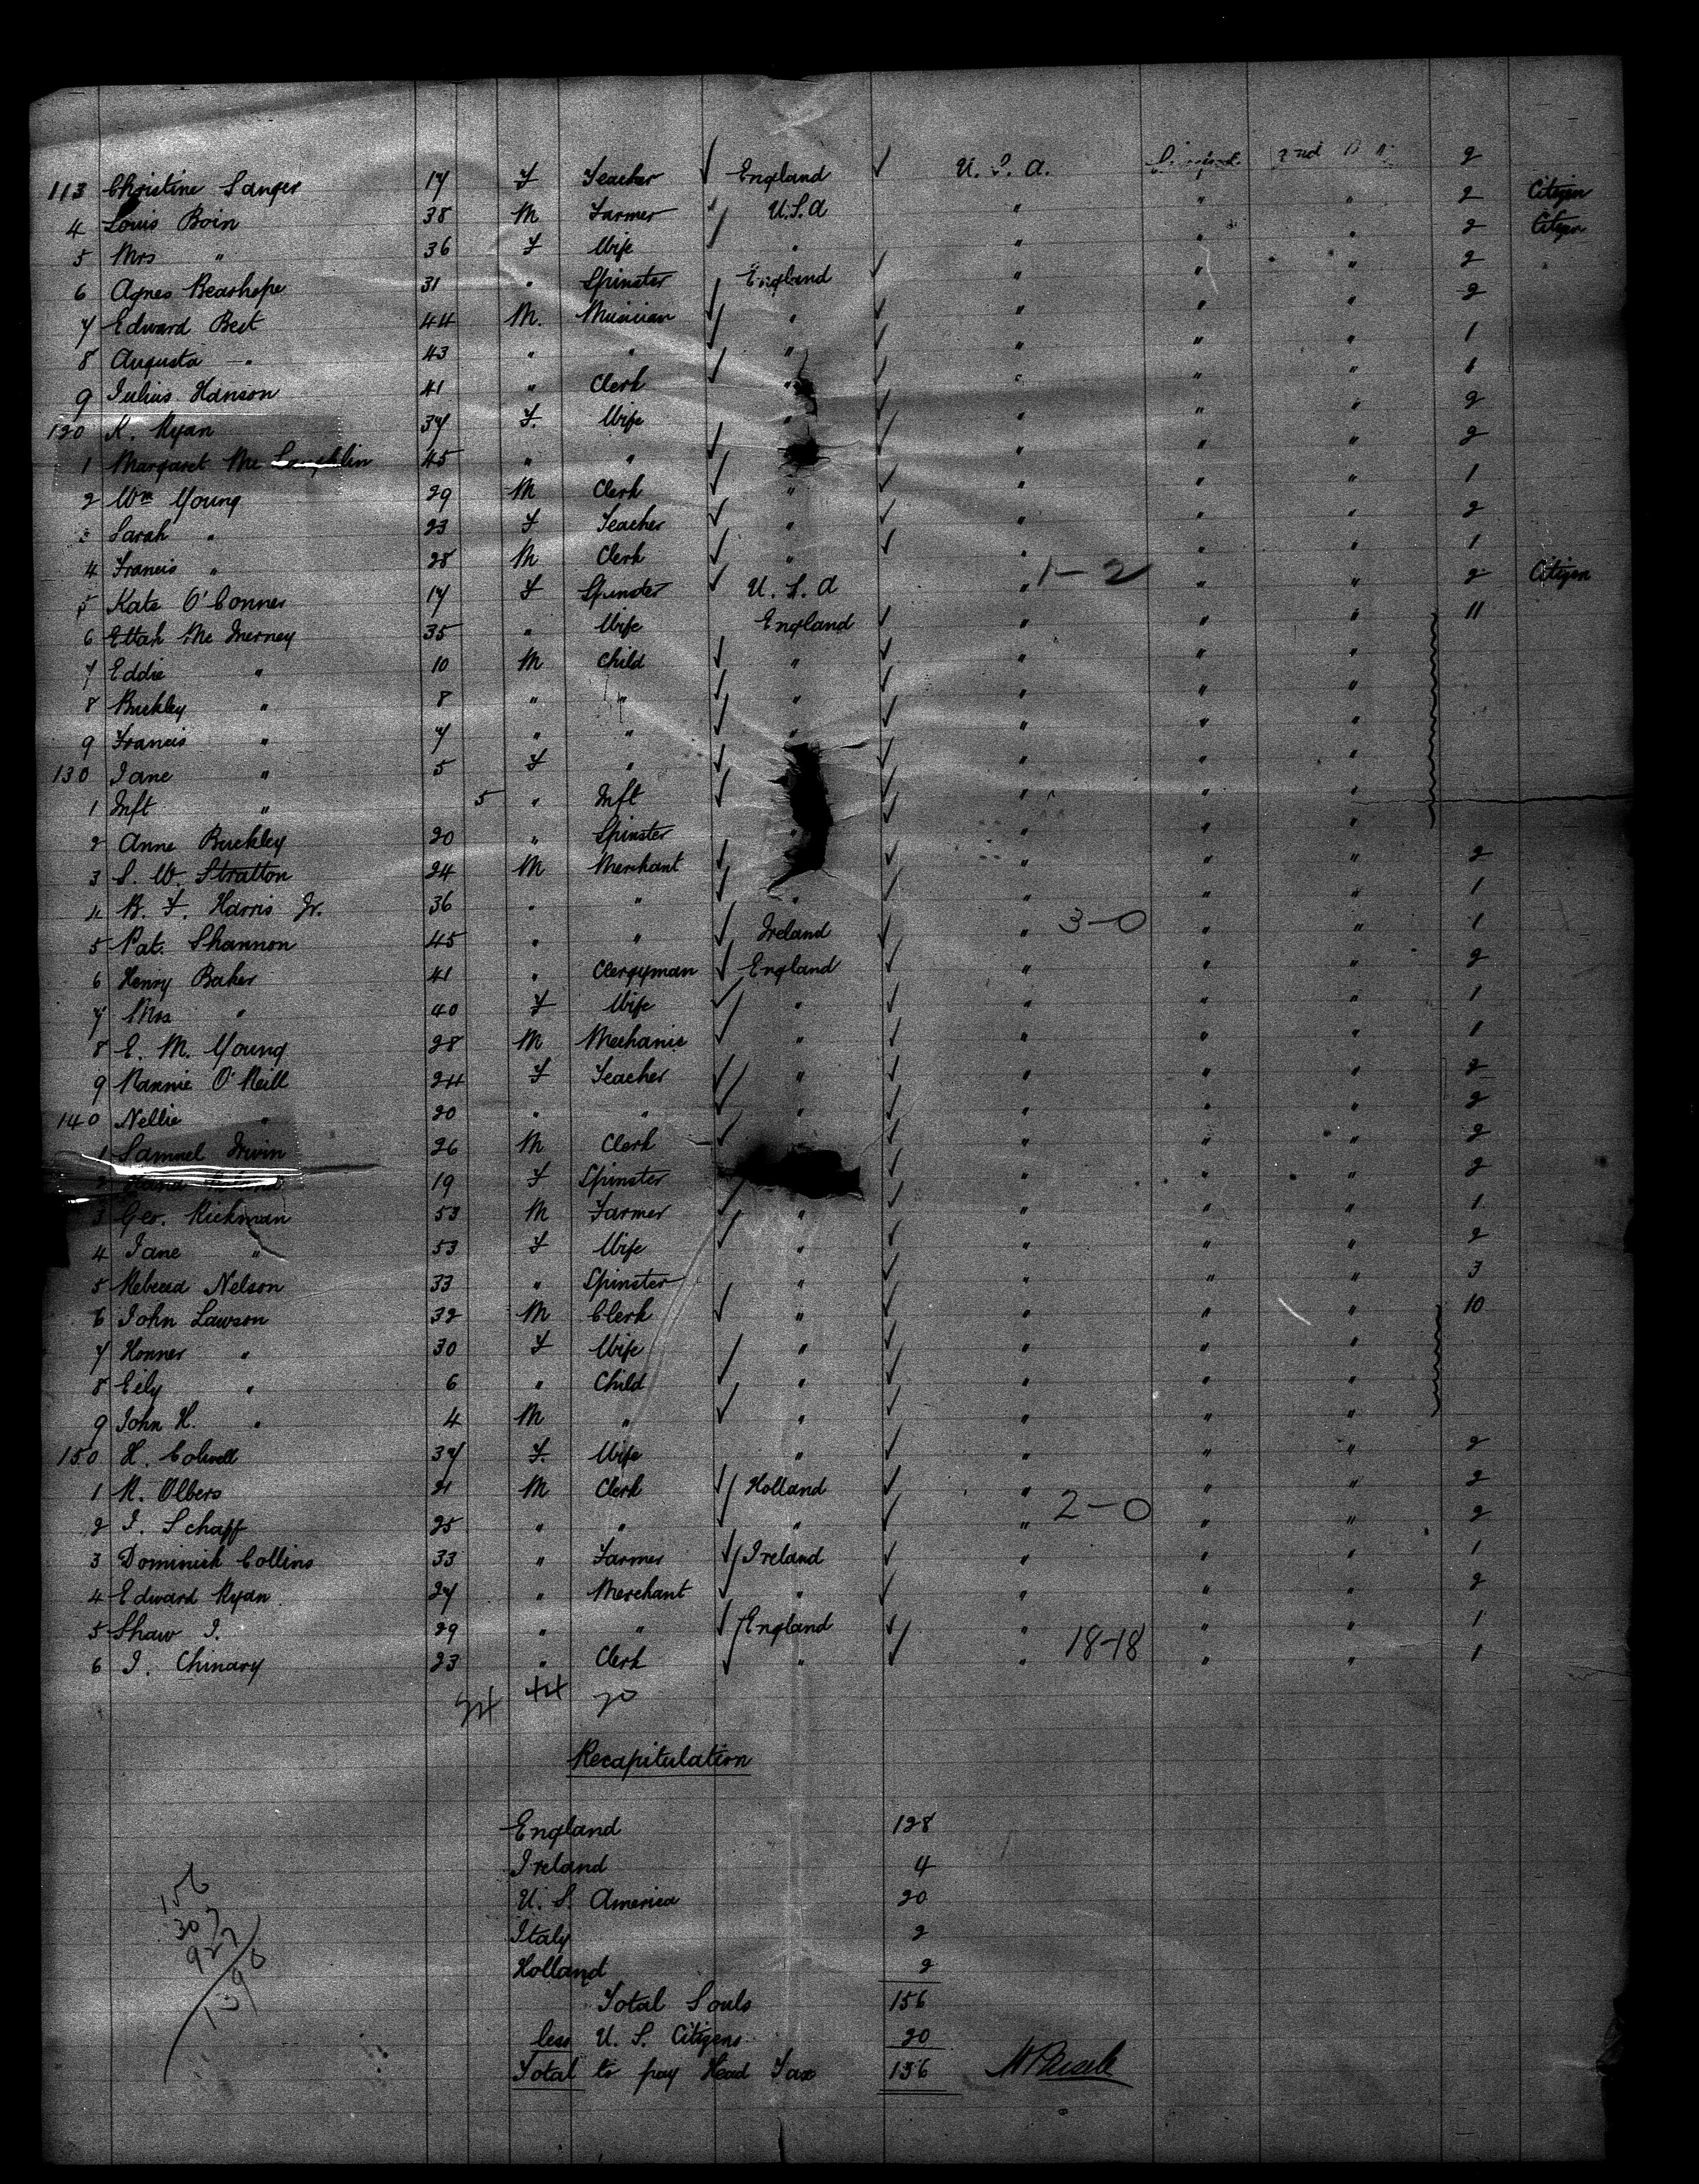 113 Christine Sanger 17 F Teacher England U.S.A. 2nd 2
4 Louis Boin 38 M Farmer U.S.A " " " 2 Citizen
5 Mrs " 36 F Wife " " " " 2 Citizen
6 Agnes Bearhope 31 " Spinster England " " " 2
7 Edward Best 44 M. Musician " " " " 2
8 Augusta " 43 " " " " " " 1
9 Julius Hanson 41 " Clerk " " " " 1
120 K. Ryan 37 F. Wife " " " 2
1 Margaret Mc 45 " " " " " 2
2 Wm Young 29 M Clerk " " " " 1
3 Sarah " 23 F Teacher " " " " 2
4 Francis " 28 M Clerk " " " " 1
1-2
5 Kate O'Conner 17 F Spinster U.S.A " " " 2 Citizen
6 Ettah Mc Inerney 35 " Wife England " " " 11
7 Eddie " 10 M Child " " " "
8 Buckley " 8 " " " " " "
9 Francis " 7 " " " " " "
130 Jane " 5 F " " " "
1 Inft " 5 " Inft " " "
2 Anne Buckley 20 " Spinster " " " "
3 S. W. Stratton 24 M Merchant " " " 2
4 B. F. Harris Jr. 36 " " " " " " 1
3-0
5 Pat. Shannon 45 " " Ireland " " " 1
6 Henry Baker 41 " Clergyman England " " " 2
7 Mrs " 40 F Wife " " " " 1
8 E. M. Young 28 M Mechanic " " " " 1
9 Nannie O'Neill 24 F Teacher " " " " 2
140 Nellie " 20 " " " " " " 2
1 Samuel Irwin 26 M Clerk " " " 2
2 19 F Spinster " " " 2
3 Geo. Rickman 53 M Farmer " " " " 1
4 Jane " 53 F Wife " " " " 2
5 Rebecca Nelson 33 " Spinster " " " " 3
6 John Lawson 32 M Clerk " " " " 10
7 Honner " 30 F Wife " " " "
8 Eily " 6 " Child " " " "
9 John H. " 4 M " " " " "
150 H. Colwell 37 F. Wife " " " " 2
1 R. Olbers 21 M Clerk Holland " " " 2
2-0
2 J. Schaff 25 " " " " " " 2
3 Dominick Collins 33 " Farmer Ireland " " " 1
4 Edward Ryan 27 " Merchant " " " " 2
5 Shaw J. 29 " " England " " " 1
18-18
6 J. Chinary 23 " Clerk " " " " 1
24 44 20
Recapitulation
England 128
Ireland 4
U. S. America 20
Italy 2
Holland 2
Total Souls 156
less U. S. Citizens 20
Total to pay Head Tax 136
156
307
927